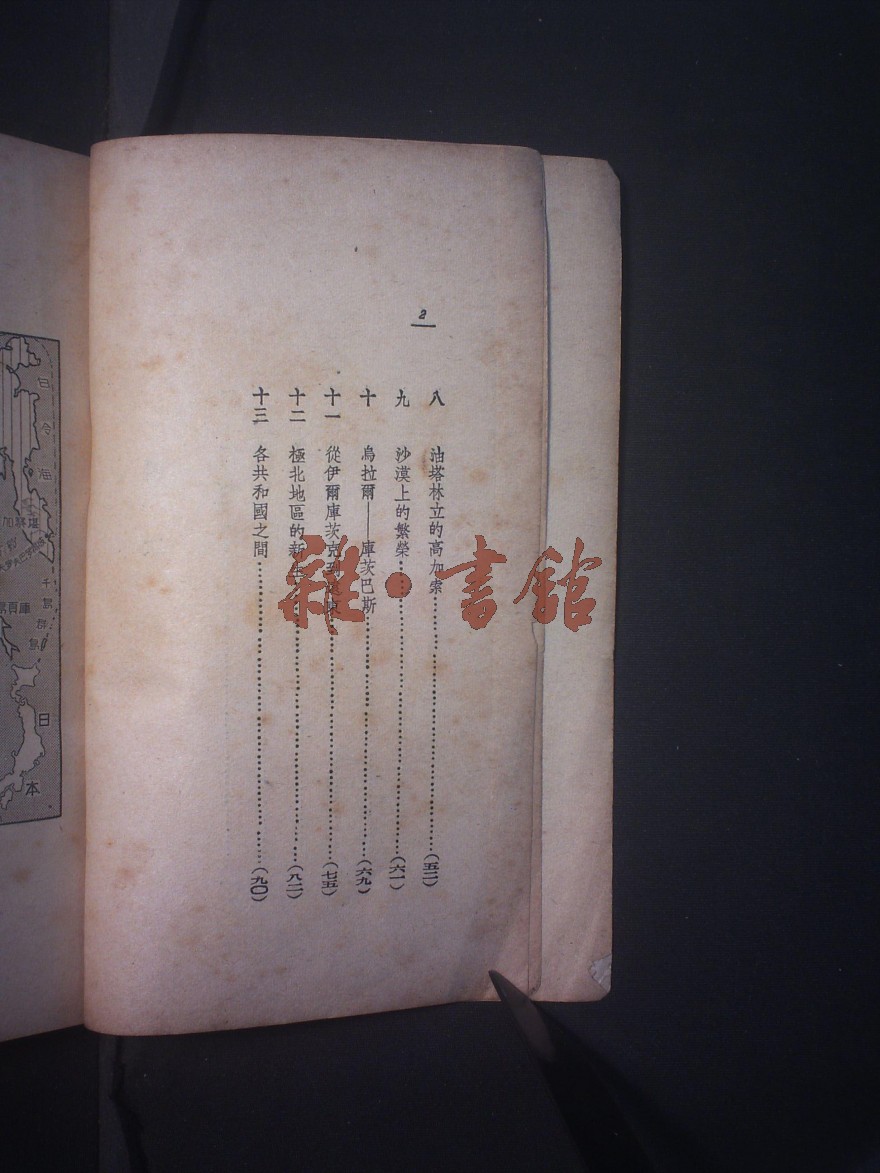 2
八 油塔林立的高加索 (五二)
九 沙漠上的繁榮 (六一)
十 烏拉爾——庫茨巴斯 (六九)
十一 從伊爾庫茨克到 (七五)
十二 極北地區的新 (八二)
十三 各共和國之間 (九〇)
雜·書館
千島群島
日
本